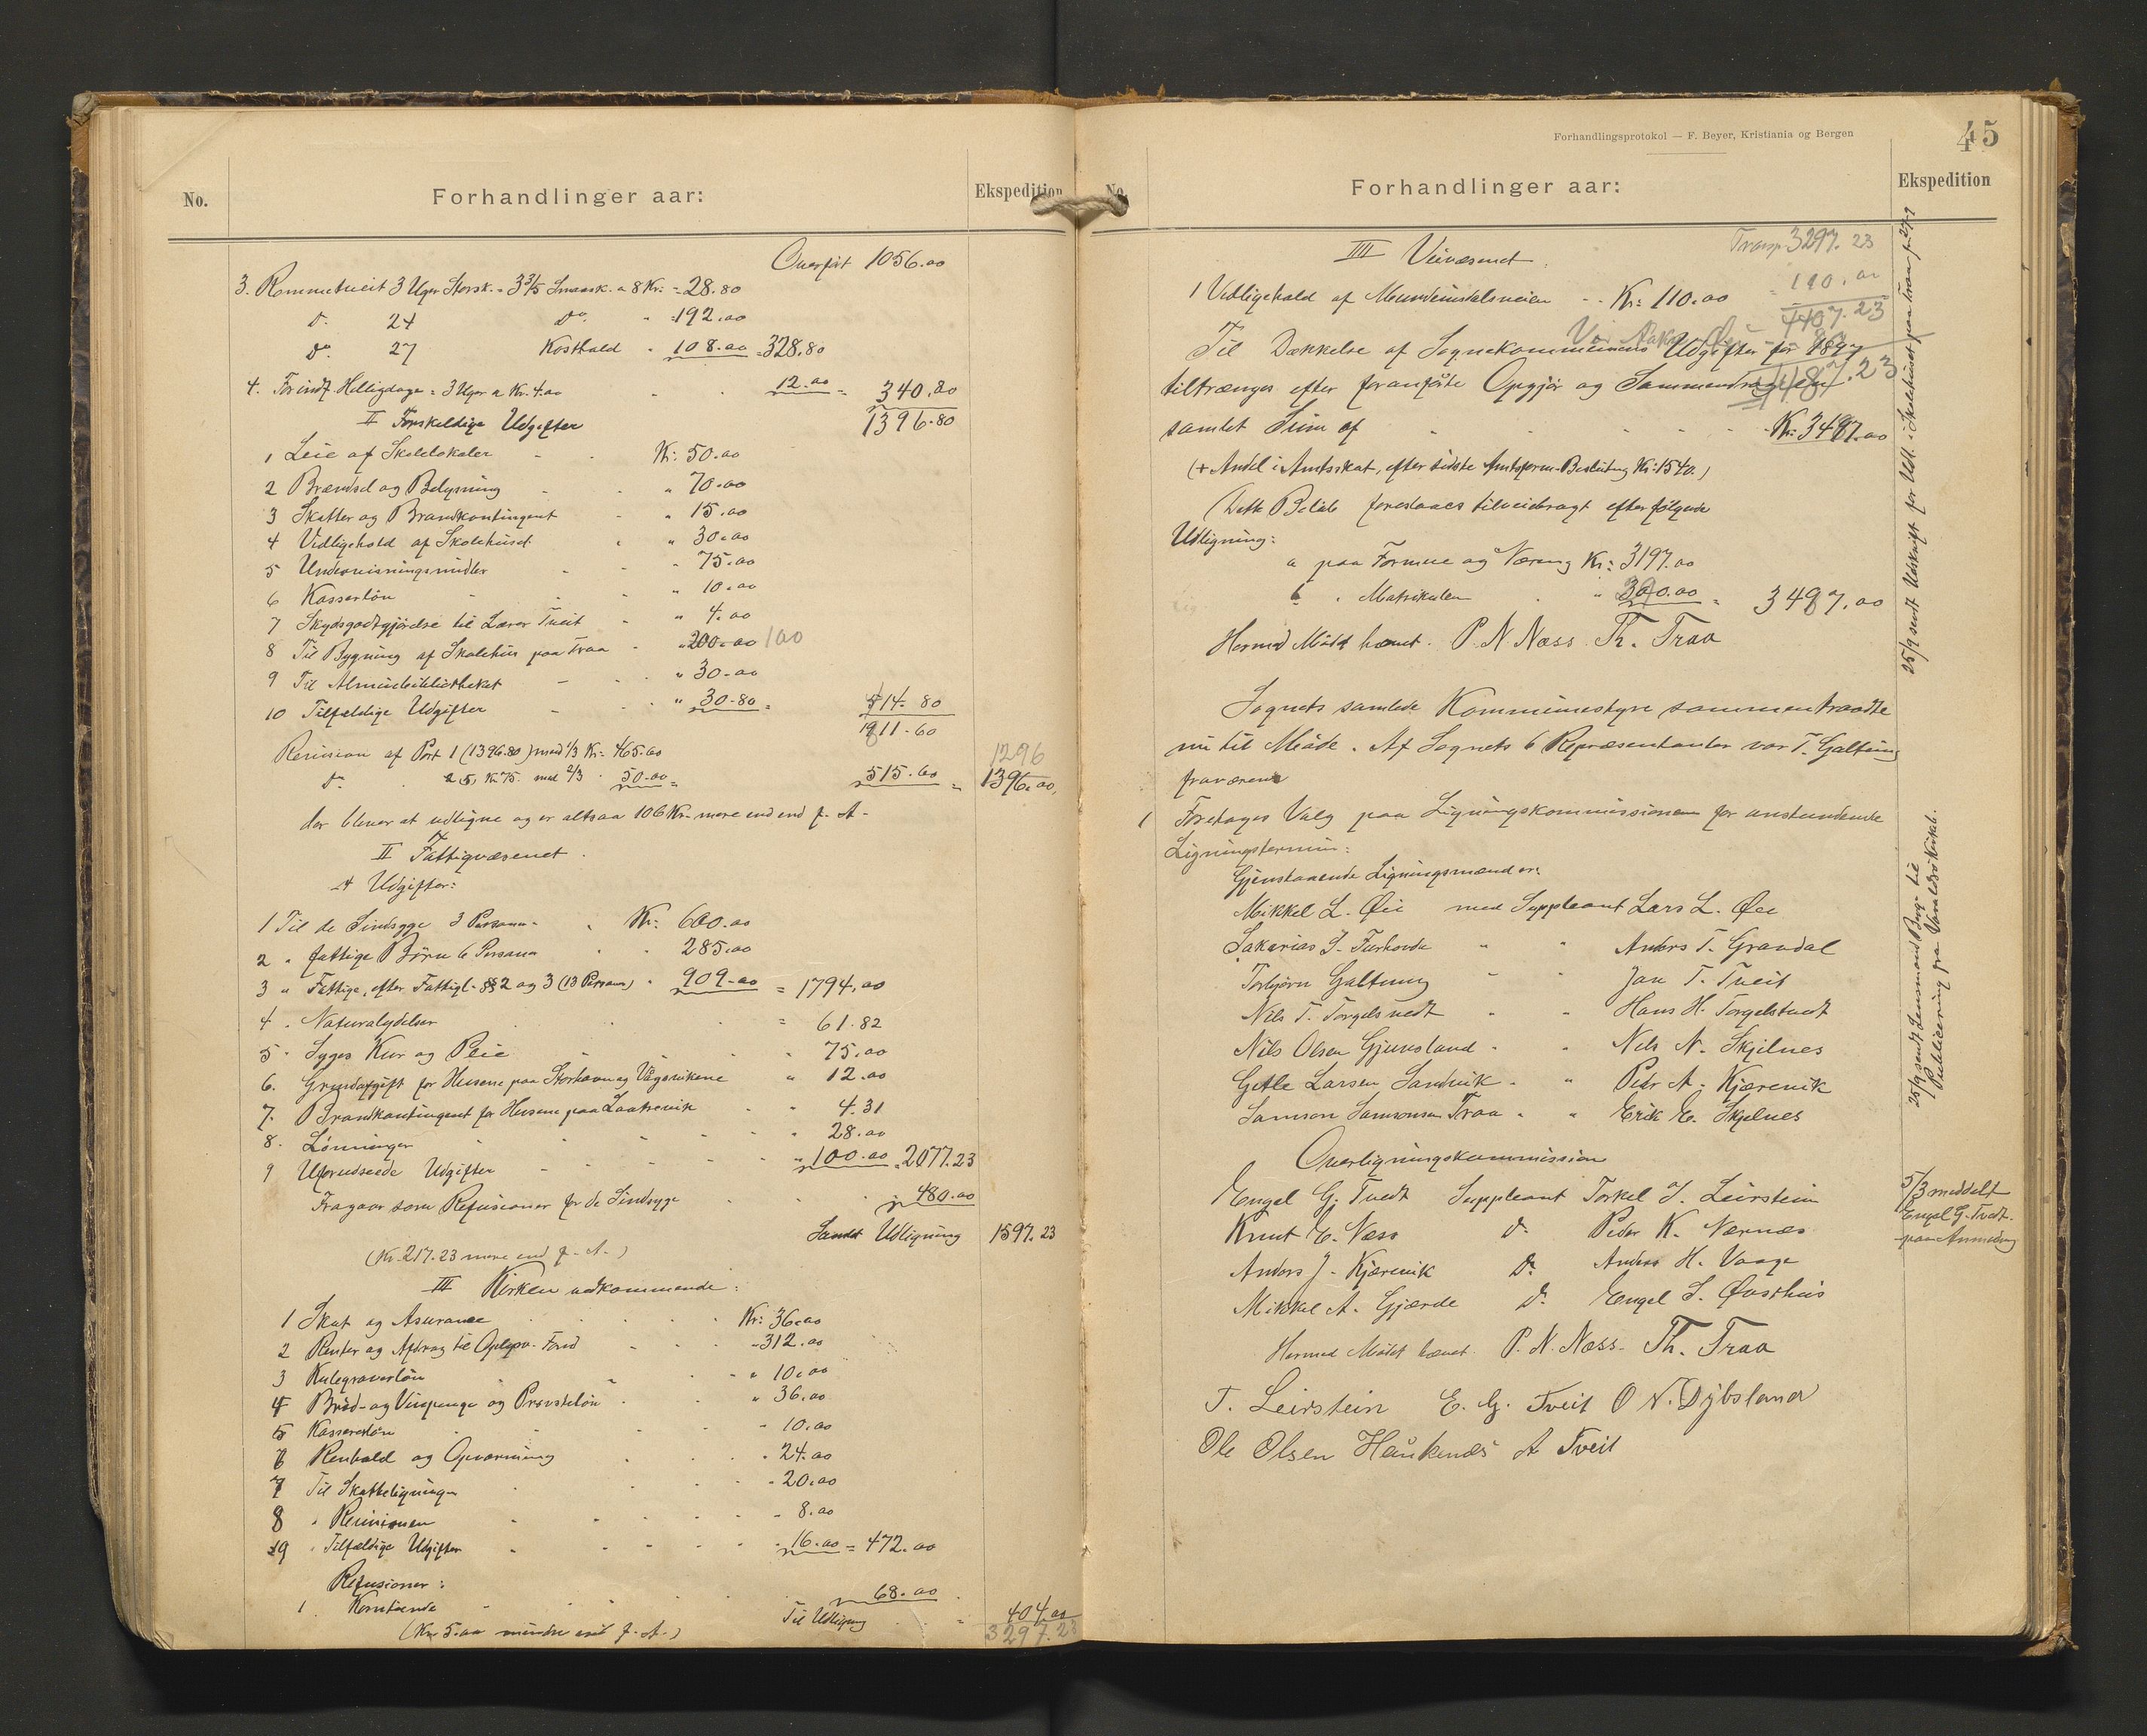 No.
Forhandlinger aar:
Ekspedition
Overført 1056.00
3. Rommetveit 3 Uger Storsk. = 3 3/5 Smaask. a 8 Kr. = 28.80
Do 24 Do " 192.00
Do 27 Kosthold " 108.00 = 328.80
4. For indt. Helligdage = 3 Uger a Kr. 4.00 12.00 = 340.80
II Forskjellige Udgifter 1396.80
1 Leie af Skolelokaler Kr. 50.00
2 Brændsel og Belysning " 70.00
3 Skatter og Brandkontingent " 15.00
4 Vedligehold af Skolehuset " 30.00
5 Undervisningsmidler " 75.00
6 Kasserløn " 10.00
7 Skydsgodtgjørelse til Lærer Tveit " 4.00
8 Til Bygning af Skolehus paa Traa " 200.00 100
9 Til Almuebibliotheket " 30.00
10 Tilfældige Udgifter " 30.80 = 514.80
1911.60
Revision af Post 1 (1396.80) med 1/3 Kr. 465.60 1296
Do 2 5, Kr. 75. med 2/3 50.00 = 515.60 = 1396.00,
der bliver at udligne og er altsaa 106 Kr. mere end f. A.
II Fattigvæsenet.
A Udgifter:
1 Til de Sindsyge 3 Personer Kr. 600.00
2 " fattige Børn 6 Personer 285.00
3 " Fattige, efter Fattigl. §§ 2 og 3 (13 Personer) " 909.00 = 1794.00
4 . Naturalydelser = 61.82
5 . Syges Kur og Pleie " 75.00
6. Grundafgift for Husene paa Storhavn og Vågsvikene " 12.00
7. Brandkontingent for Husene paa " 4.31
8. Lønninger " 28.00
9 Uforudseede Udgifter " 100.00 = 2077.23
Fragaar som Refusioner for de Sindsyge 480.00
Samlet Udligning 1597.23
(Kr. 217.23 mere end f. A.)
III Kirken vedkommende:
1 Skat og Asurance Kr. 36.00
2 Renter og Afdrag til Oplysn. Fond " 312.00
3 Kulegraverløn " 10.00
4 Brød- og Vinpenge og Provsteløn " 36.00
5 Kassererløn " 10.00
6 Renhold og Opvarming " 24.00
7 Til Skatteligningen " 20.00
8 " Revisionen " 8.00
9 " Tilfældige Udgifter " 16.00 = 472.00
Refusioner:
1. Korntiende 68.00
Til Udligning = 404.00
(Kr 5.00 mindre end f. A.) 3297.23
Forhandlingsprotokol — F. Beyer, Kristiania og Bergen
45
No.
Forhandlinger aar:
Ekspedition
IIII Veivæsenet. Transp. 3297.23
1 Vedligehold af Mundeimsdalsveien Kr. 110.00 110.00
4407.23
Til Dækkelse af Sognekommunens Udgifter for 1897
tiltrænges efter foranførte Opgjør og Sammendrag en
3487.23
samlet Sum af Kr. 3487.00
(+ Andel i Amtsskat, efter sidste Amtsform. Beslutning Kr. 1540.)
Dette Beløb foreslaaes tilveiebragt efter følgende
Udligning:
a paa Formue og Næring Kr. 3197.00
b " Matrikulen " 390.00 = 3487.00
Hermed Mødet hævet. P. N. Næss Th. Traa
Sognets samlede Kommunestyre sammentraadte
nu til Møde. Af Sognets 6 Repræsentanter var T. Galtung
fraværende
1 Foretages Valg paa Ligningskommissionen for anstundende
Ligningstermin:
Gjenstaaende Ligningsmænd er:
Mikkel L. Øie med Suppleant Lars L. Øie
Sakarias J. Furhovde " " Anders T. Grandal
Torbjørn Galtung " " Jan T. Tveit
Nils T. Torgelstvedt " " Hans H. Torgelstvedt
Nils Olsen Gjuvsland " " Nils N. Skjelnes
Getle Larsen Sandvik " " Peder A. Kjærevik
Samson Samsonsen Traa " " Erik E. Skjelnes
Overligningskommission
Engel G. Tvedt Suppleant Torkel J. Leirstein
Knut E. Næss Do Peder K. Nernæs
Anders J. Kjærevik Do Anders H. Vaage
Mikkel A. Gjærde Do Engel S. Øvsthus
Hermed Mødet hævet. P. N. Næss. Th. Traa
T. Leirstein E. G. Tveit O N. Dybsland
Ole Olsen Håukenæs A Tveit
25/9 sendt Udskrift for Udl. i Skolehuset paa Traa p. 27-9
25/9 sendt Lensmand Berge til
Publicering fra Varaldsø Kirkeb.
5/3 meddelt
Engel G. Tvedt
paa Anmodng